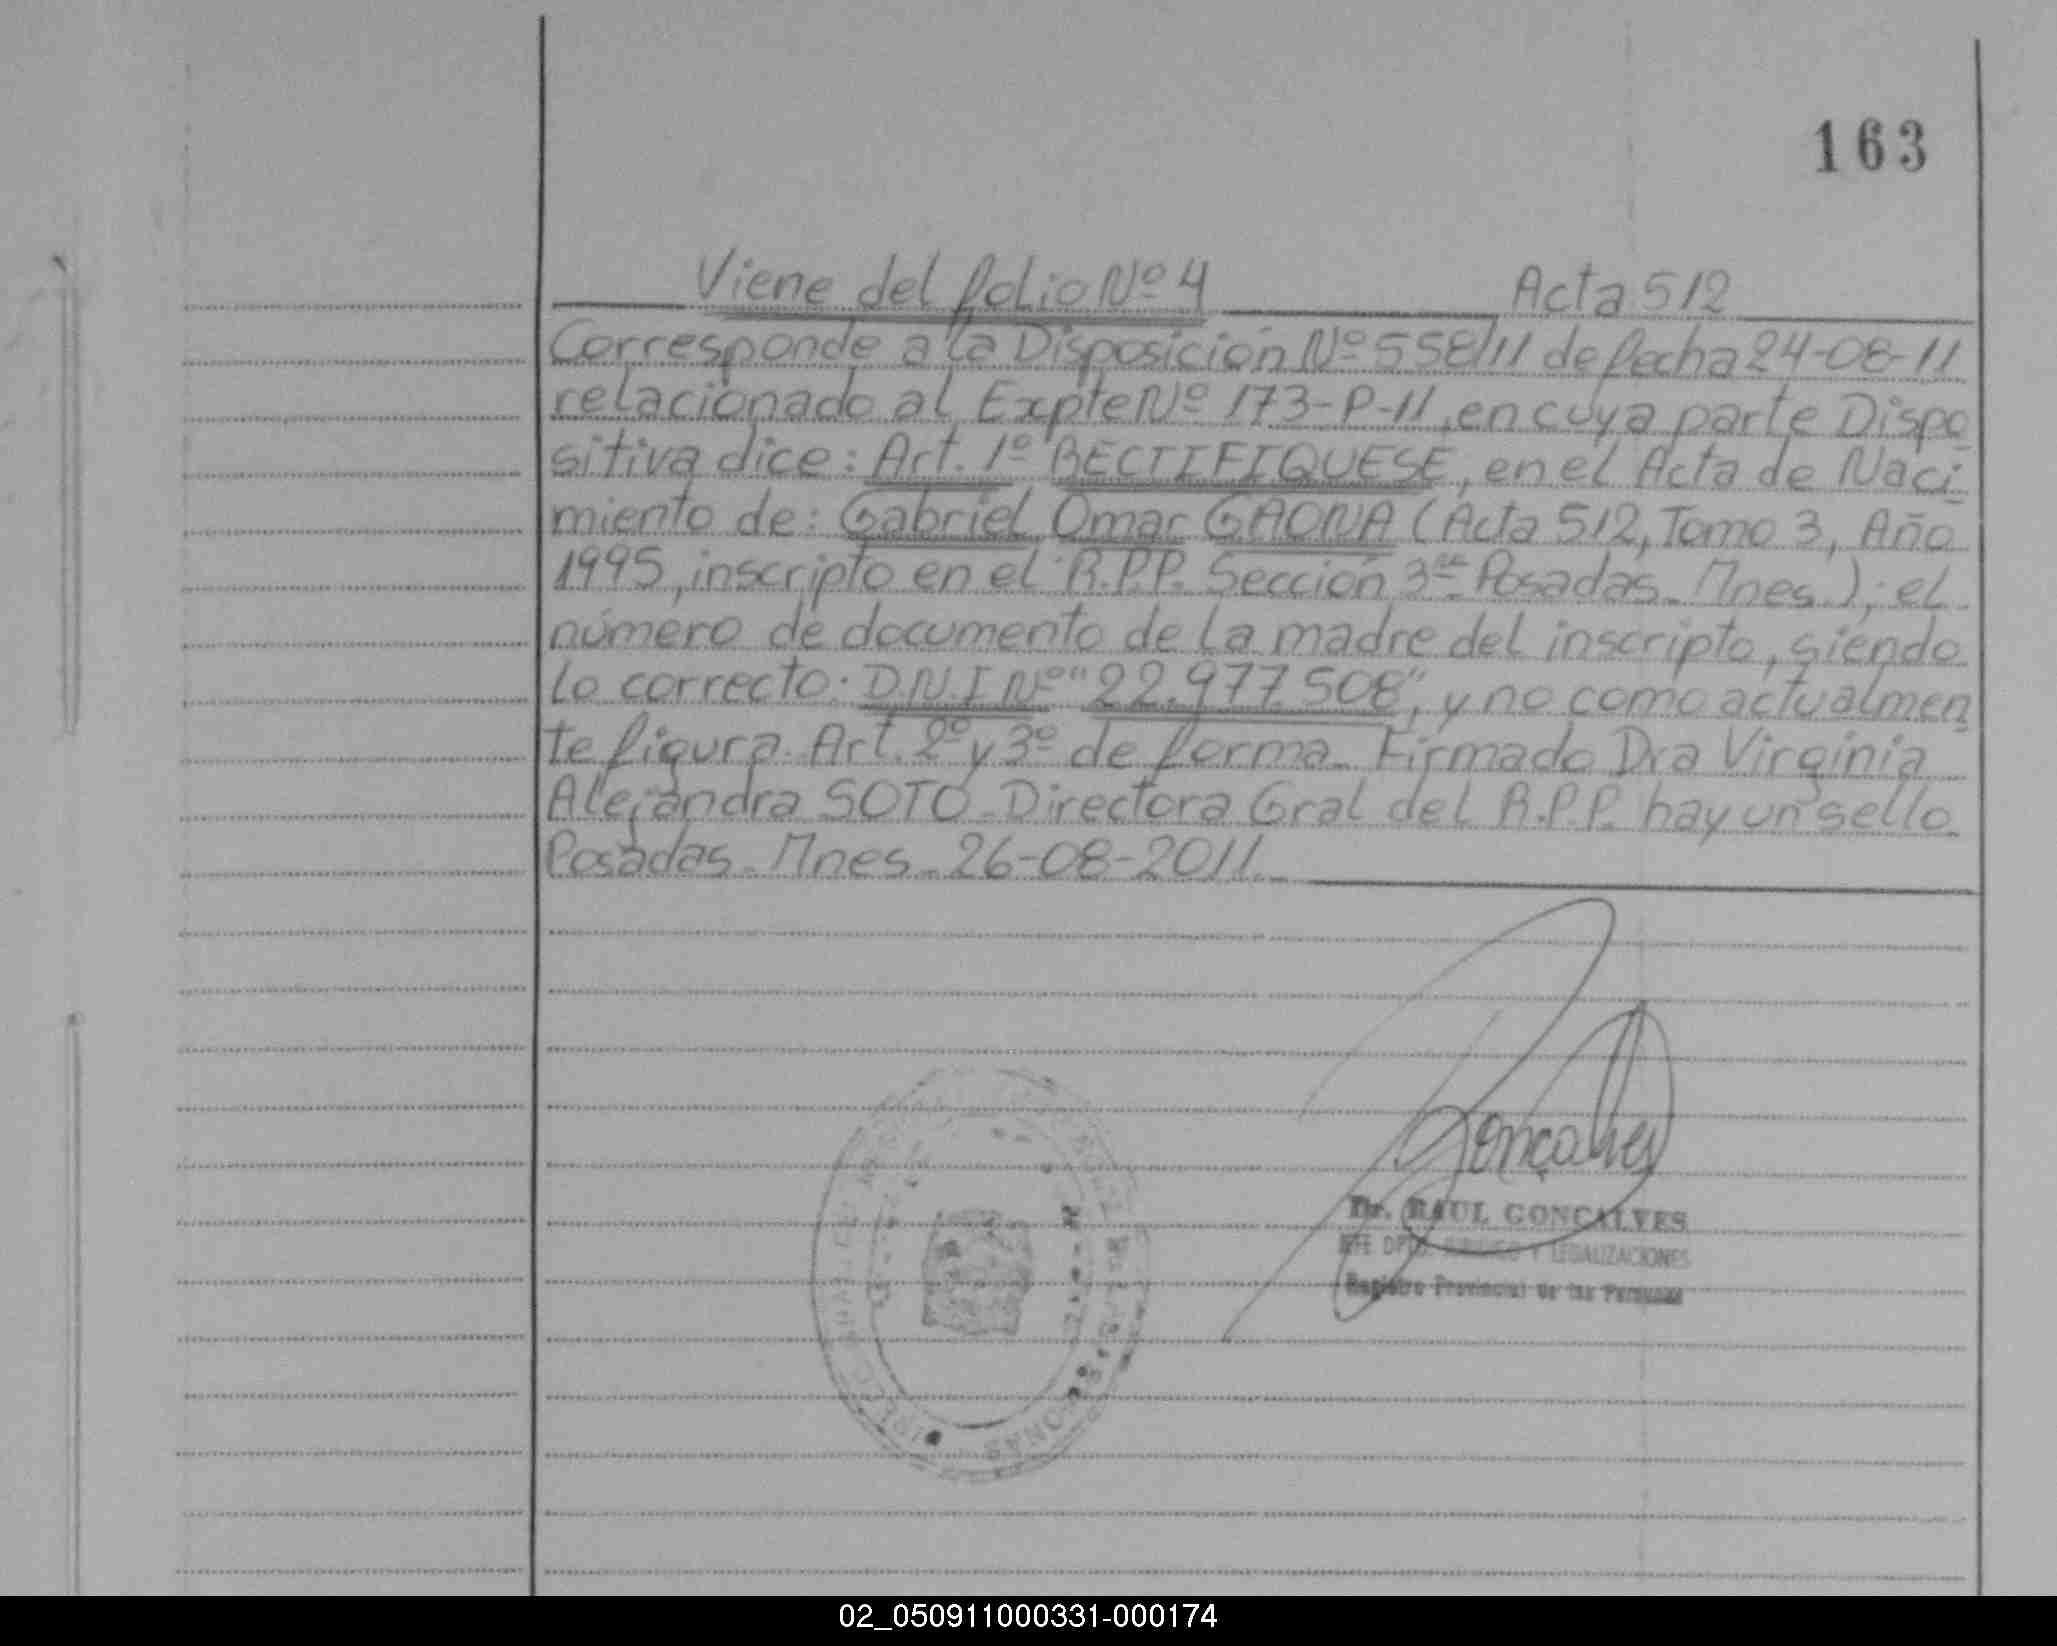 163
Viene del folio Nº 4 Acta 512
Corresponde a la Disposición Nº 558/11 de fecha 24-08-11
relacionado al Expte Nº 173-P-11, en cuya parte Dispo
sitiva dice: Art. 1º RECTIFIQUESE, en el Acta de Naci
miento de: Gabriel Omar GAONA (Acta 512, Tomo 3, Año
1995, inscripto en el R.P.P. Sección 3ra Posadas - Mnes.); el
número de documento de la madre del inscripto, siendo
lo correcto: D.N.I Nº "22.977.508", y no como actualmen
te figura. Art. 2º y 3º de forma. Firmado Dra Virginia
Alejandra SOTO - Directora Gral del R.P.P. hay un sello
Posadas - Mnes - 26-08-2011.
Gonçalves
Dr. RAUL GONCALVES
JEFE DPTO. JURIDICO Y LEGALIZACIONES
Registro Provincial de las Personas
02_050911000331-000174